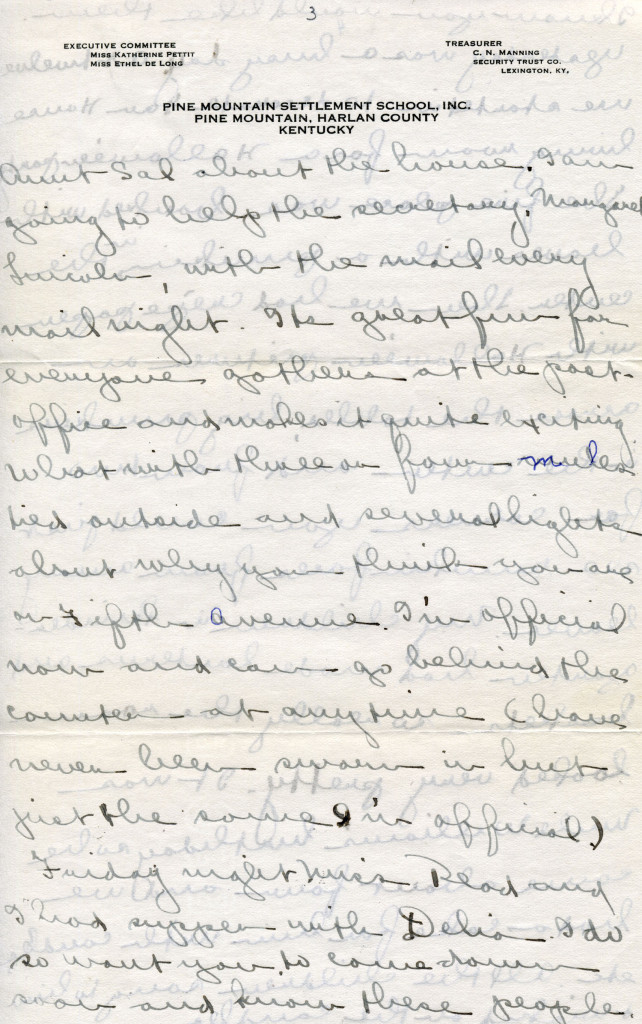 3
EXECUTIVE COMMITTEE
MISS KATHERINE PETTIT
MISS ETHEL DE LONG
TREASURER
C. N. MANNING
SECURITY TRUST CO.
LEXINGTON, KY.
PINE MOUNTAIN SETTLEMENT SCHOOL, INC.
PINE MOUNTAIN, HARLAN COUNTY
KENTUCKY
Aunt Sal about the house. I am
going to help the secretary, Margaret
Lincoln, with the mail every
mail night. Its great fun for
everyone gathers at the post-
office and makes it quite exciting
What with three or four mules
tied outside and several lights
about why you think you are
on Fifth avenue. I'm official
now and can go behind the
counter at anytime (have
never been sworn in but
just the same I'm official.)
Friday night Miss Read and
I had supper with Delia. I do
so want you to come down
soon and know these people.